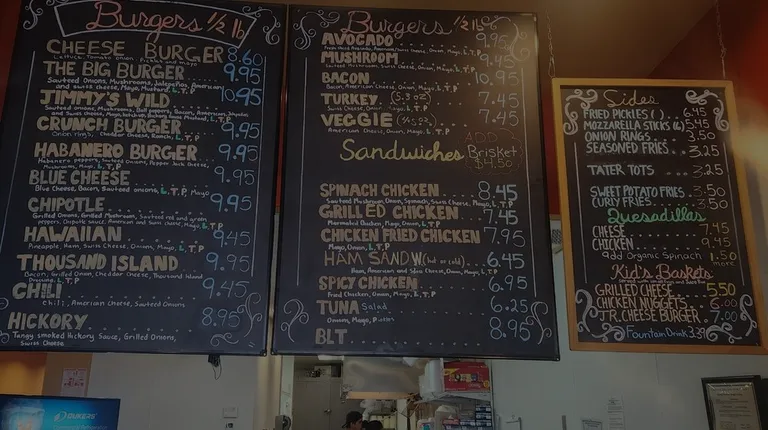 Burgers 1/2 lb
CHEESE BURGER 8.60
Lettuce, Tomato, Onion, Pickle and mayo
THE BIG BURGER 9.95
Sauteed Onions, Mushrooms, Jalapeños, American
and Swiss cheese, Mayo, Mustard, L, T, P
JIMMY'S WILD 10.95
CRUNCH BURGER 9.95
Onion rings, Cheddar Cheese, L, T, P
HABANERO BURGER 9.95
Habanero peppers, Sauteed Onions, Pepper Jack Cheese,
Mushrooms, Mayo, L, T, P
BLUE CHEESE 9.95
Blue Cheese, Bacon, Sauteed onions, L, T, P Mayo
CHIPOTLE 9.95
Grilled Onions, Grilled Mushroom, Sauteed red and green
peppers, Chipotle sauce, American and Swiss Cheese, Mayo, L, T, P
HAWAIIAN 9.45
Pineapple, Ham, Swiss Cheese, Onion, Mayo, L, T, P
THOUSAND ISLAND 9.95
Bacon, Grilled Onion, Cheddar Cheese, Thousand Island
Dressing, L, T, P
CHILI 9.45
Chili, American Cheese, Sauteed Onions
HICKORY 8.95
Tangy smoked Hickory Sauce, Grilled Onions,
Swiss Cheese
Burgers 1/2 lb
AVOCADO 9.95
MUSHROOM 9.45
Sauteed Mushrooms, Swiss Cheese, Onion, Mayo, L, T, P
BACON 10.95
Bacon, American Cheese, Onion, Mayo, L, T, P
TURKEY (5.3 oz) 7.45
Swiss Cheese, Onion, Mayo, L, T, P
VEGGIE 7.45
American Cheese, Onion, Mayo, L, T, P
Sandwiches
ADD
Brisket
$4.50
SPINACH CHICKEN 8.45
Sauteed Mushroom Onion, Spinach, Swiss Cheese, Mayo, L, T, P
GRILLED CHICKEN 7.45
Marinated Chicken, Onion, Mayo, L, T, P
CHICKEN FRIED CHICKEN 7.95
Onion, Mayo, L, T, P
HAM SANDW. (hot or cold) 6.45
Ham, American and Swiss Cheese, Onion, Mayo, L, T, P
SPICY CHICKEN 6.95
Fried Chicken, Onion, Mayo, L, T, P
TUNA Salad 6.25
Onion, Mayo,
BLT 8.95
Sides
FRIED PICKLES 6.45
MOZZARELLA STICKS (6) 6.45
ONION RINGS 3.50
SEASONED FRIES 3.25
TATER TOTS 3.25
SWEET POTATO FRIES 3.50
CURLY FRIES 3.50
Quesadillas
CHEESE 7.45
CHICKEN 9.45
add Organic Spinach 1.50
more
Kid's Baskets
GRILLED CHEESE 5.50
CHICKEN NUGGETS 6.00
JR. CHEESE BURGER 7.00
Fountain Drink 3.39
DUKERS